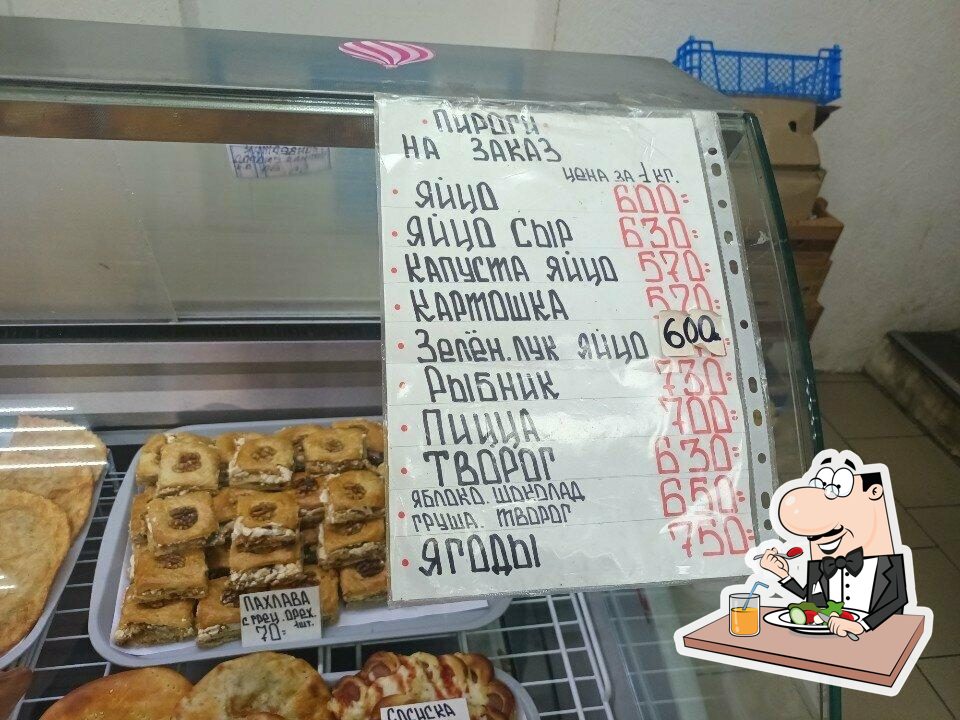 · ПИРОГИ ·
НА ЗАКАЗ
ЦЕНА ЗА 1 КГ.
· ЯЙЦО 600=
· ЯЙЦО СЫР 630=
· КАПУСТА ЯЙЦО 570=
· КАРТОШКА 570=
· ЗЕЛЁН. ЛУК ЯЙЦО 600=
· РЫБНИК 730=
· ПИЦЦА 700=
· ТВОРОГ 630=
· ЯБЛОКО. ШОКОЛАД 650=
· ГРУША. ТВОРОГ
· ЯГОДЫ 750=
ПАХЛАВА
С ГРЕЦ. ОРЕХ.
70= 1ШТ.
СОСИСКА